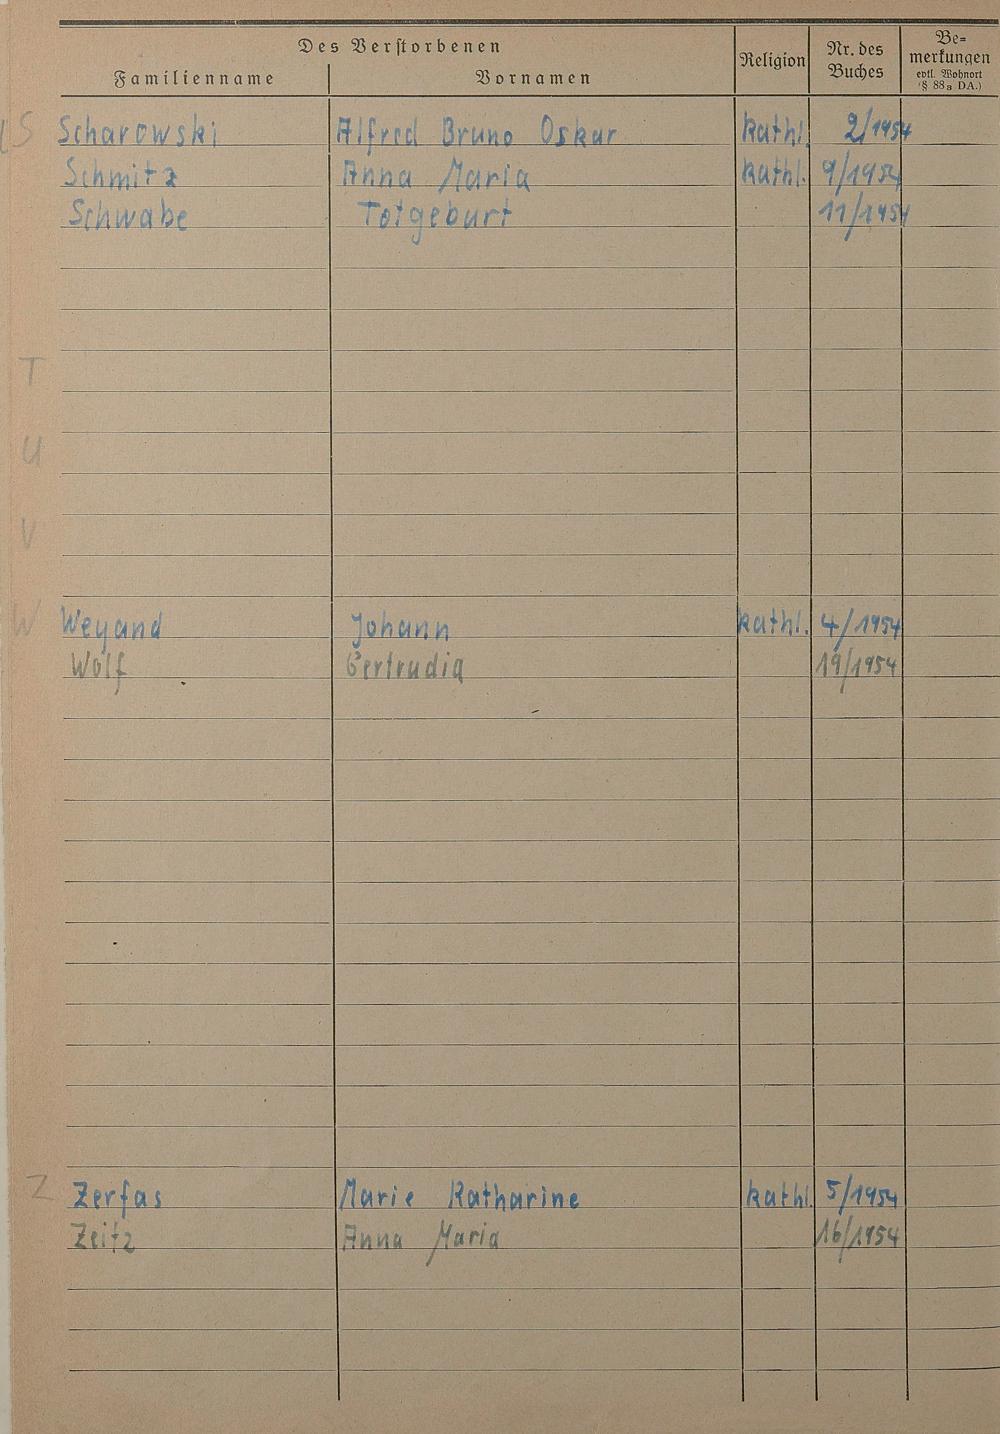 Des Verstorbenen
Familienname Vornamen Religion Nr. des Buches Be-merkungen evtl. Wohnort (§ 88a DA.)
S Scharowski Alfred Bruno Oskar kathl. 2/1954
Schmitz Anna Maria kathl. 9/1954
Schwabe Totgeburt 11/1954
T
U
V
W Weyand Johann kathl. 4/1954
Wolf Gertrudia 19/1954
Z Zerfas Marie Katharine kathl. 5/1954
Zeitz Anna Maria 16/1954